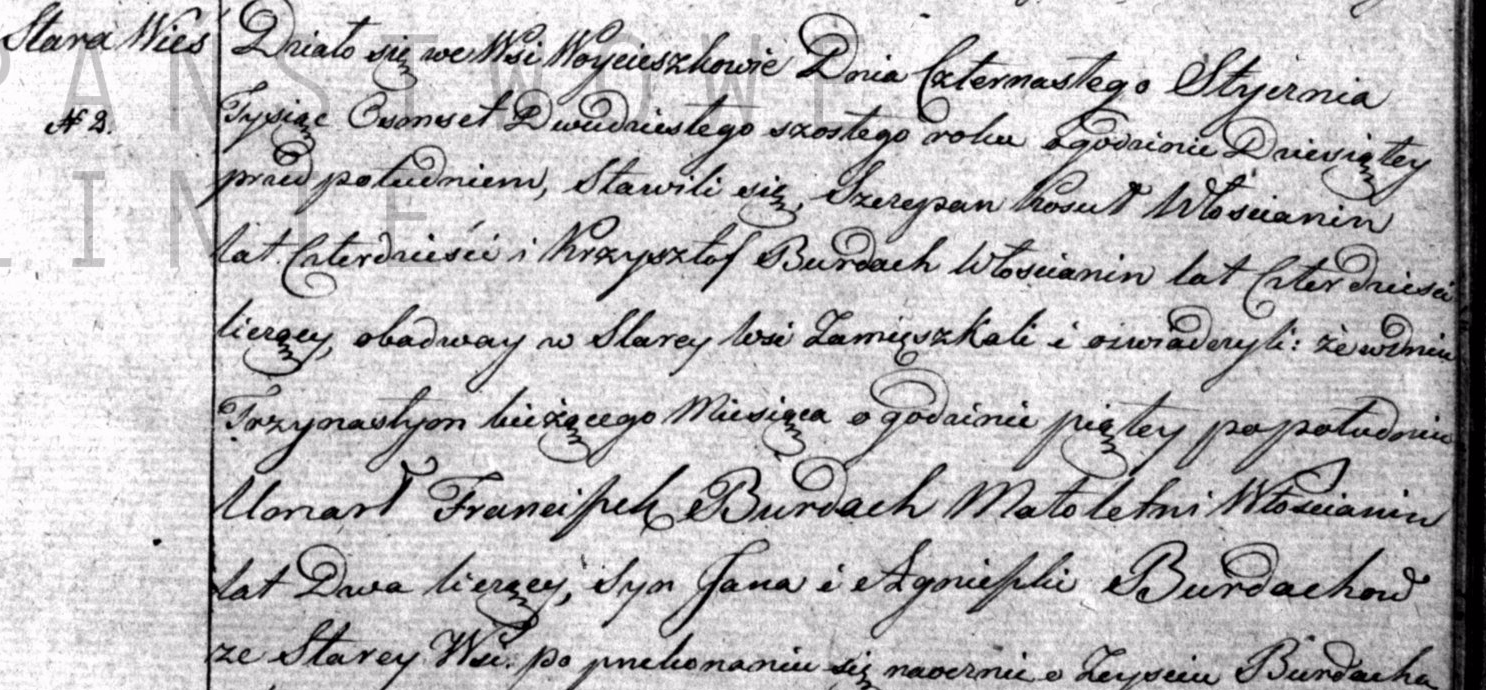 Stara Wies
N 2.
Działo się we Wsi Woycieszkowie Dnia Czternastego Stycznia
Tysiąc Osmset Dwudziestego szostego roku o godzinie Dziesiątey
przed południem, Stawili się, Szczepan Kosut Włościanin
lat Czterdzieści i Krzysztof Burdach Włoscianin lat Czterdziesci
liczący, obadway w Starey Wsi Zamięszkali i oswiadczyli: że w dniu
Trzynastym bieżącego Miesiąca o godzinie piątey po południu
Umarł Franciszek Burdach Małoletni Włościanin
lat Dwa liczący, Syn Jana i Agnieszki Burdachow
ze Starey Wsi. po przekonaniu się naocznie o Zeysciu Burdacha
PAŃSTWOWE
LINIE